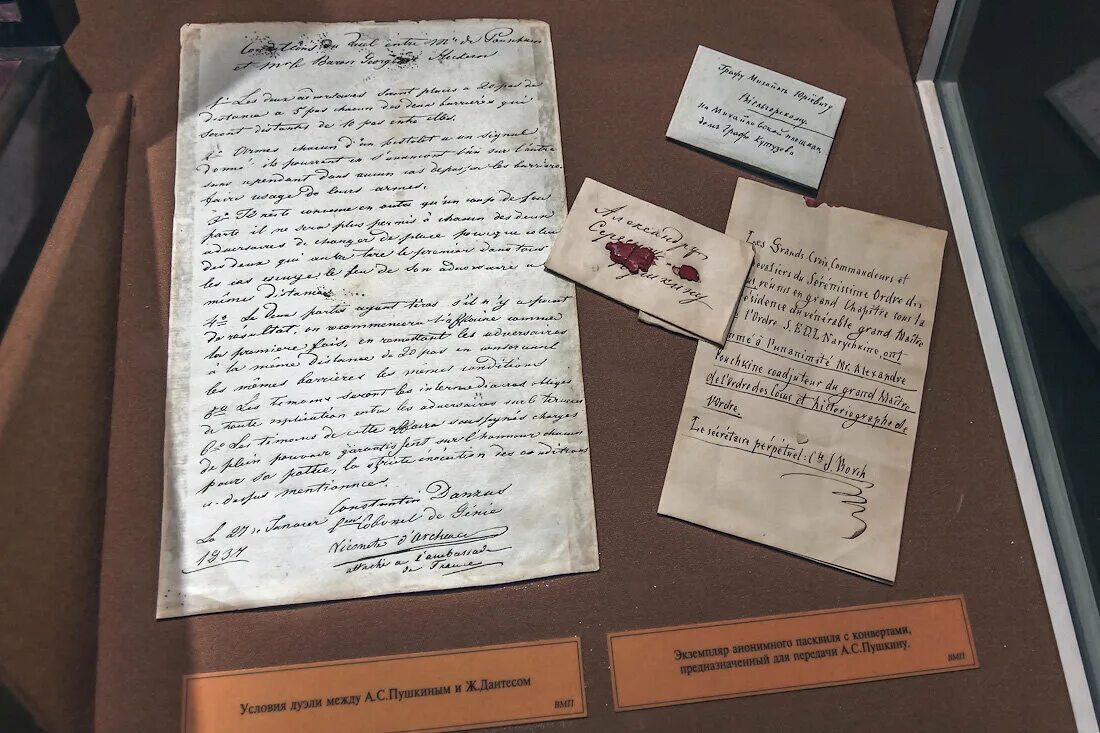 Conditions du duel entre Mr de Pouschkin
et Mr le Baron Georges Heckeren
1º Les deux adversaires seront placés à 20 pas de
distance à 5 pas chacun des deux barrières qui
seront distantes de 10 pas entre elles.
2º Armés chacun d'un pistolet à un signal
donné ils pourront en s'avançant l'un sur l'autre
sans cependant dans aucun cas dépasser les barrières
faire usage de leurs armes.
3º Il reste convenu en outre qu'un coup de feu
parti il ne sera plus permis à chacun des deux
adversaires de changer de place pour que celui
des deux qui aura tiré le premier dans tous
les cas essuye le feu de son adversaire à la
même distance
4º Les deux parties ayant tirés s'il n'y a point
de résultat, on recommencera l'affaire comme
la première fois, en remettant les adversaires
à la même distance de 20 pas en conservant
les mêmes barrières les mêmes conditions
5º Les témoins seront les intermédiaires obligés
de toute explication entre les adversaires sur le terrain
6º Les témoins de cette affaire soussignés chargés
de plein pouvoir garantissent sur l'honneur chacun
pour sa partie, la stricte exécution des conditions
ci-dessus mentionnées.
Constantin Danzas
Lieut Colonel de Génie
Le 27 Janvier
1937
Vicomte d'Archiac
attaché à l'ambassade
de France
Графу Михаилу Юрiевичу
Вiельгорскому.
На Михайловской площади,
домъ Графа Кутузова
Александру
Сергеичу
Пушкину
Les Grands-Croix, Commandeurs et
Chevaliers du Sérénissime Ordre des
réunis en grand Chapitre sous la
présidence du vénérable grand-Maître
de l'Ordre, S.E.D.L. Narychkine, ont
nommé à l'unanimité Mr. Alexandre
Pouchkine coadjuteur du grand Maître
de l'Ordre des Cocus et historiographe de
l'Ordre.
Le sécrétaire perpétuel: Cte J. Borch
Условия дуэли между А.С.Пушкиным и Ж.Дантесом
ВМП
Экземпляр анонимного пасквиля с конвертами,
предназначенный для передачи А.С.Пушкину.
ВМП